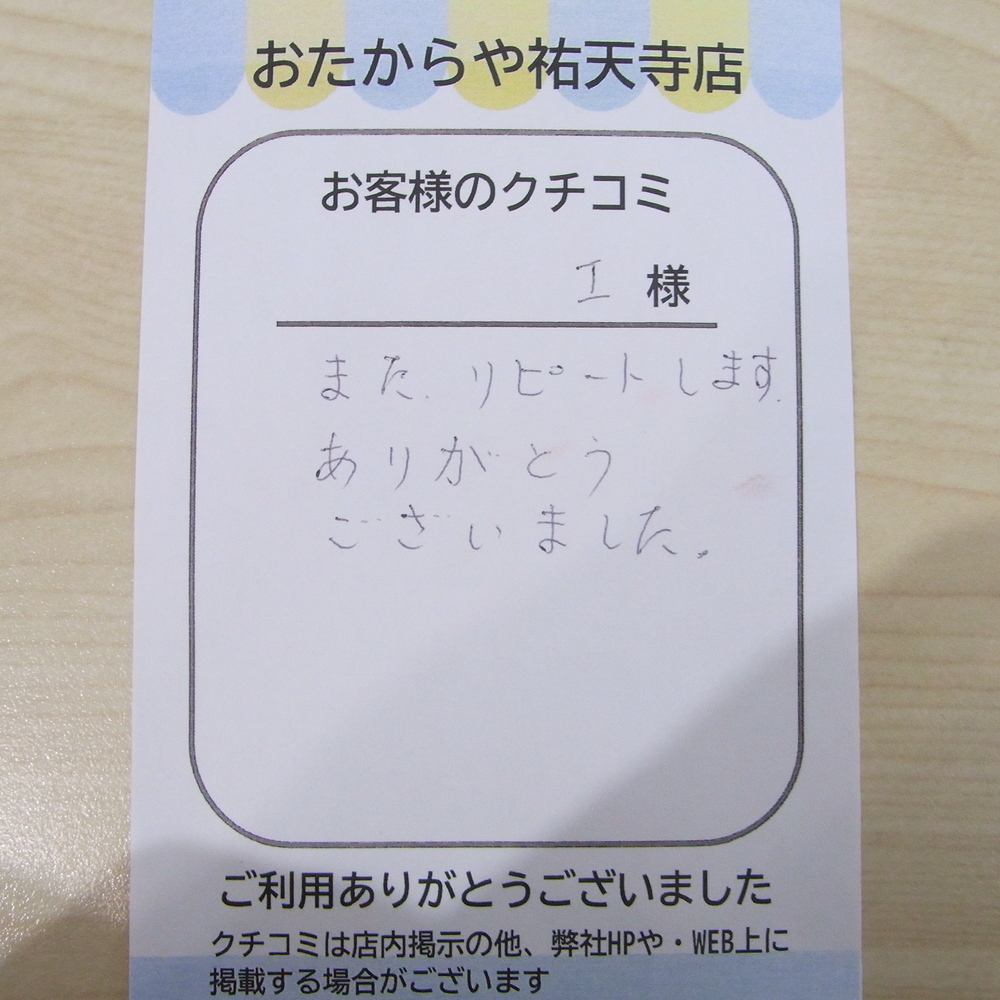 おたからや祐天寺店
お客様のクチコミ
I 様
また、リピートします。
ありがとう
ございました。
ご利用ありがとうございました
クチコミは店内掲示の他、弊社HPや・WEB上に
掲載する場合がございます